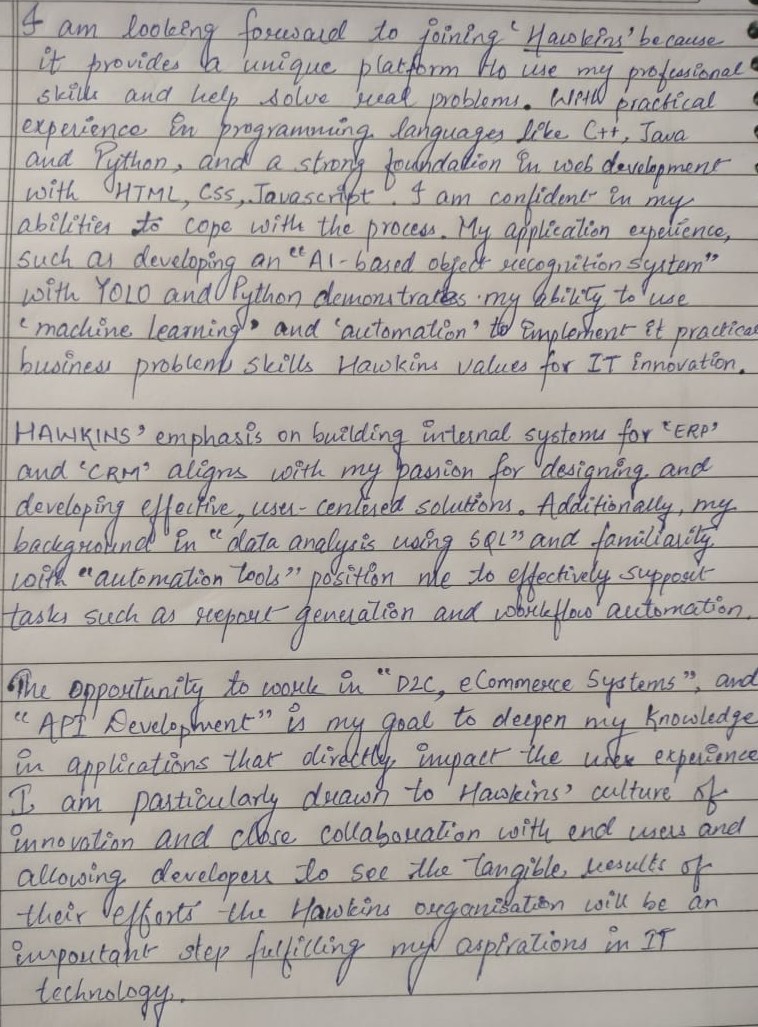 I am looking forward to joining 'Hawkins' because
it provides a unique platform to use my professional
skills and help solve real problems. With practical
experience in programming languages like C++, Java
and Python, and a strong foundation in web development
with HTML, CSS, Javascript. I am confident in my
abilities to cope with the process. My application experience,
such as developing an "AI-based object recognition system"
with YOLO and Python demonstrates my ability to use
'machine learning' and 'automation' to implement it practical
business problem skills Hawkins values for IT innovation.
HAWKINS' emphasis on building internal systems for 'ERP'
and 'CRM' aligns with my passion for designing and
developing effective, user-centered solutions. Additionally, my
background in "data analysis using SQL" and familiarity
with "automation tools" position me to effectively support
tasks such as report generation and workflow automation.
The opportunity to work in "D2C, eCommerce Systems", and
"API Development" is my goal to deepen my knowledge
in applications that directly impact the user experience
I am particularly drawn to Hawkins' culture of
innovation and close collaboration with end users and
allowing developers to see the tangible results of
their efforts the Hawkins organisation will be an
important step fulfilling my aspirations in IT
technology.